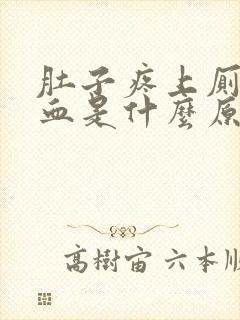 肚子疼上厕
血是什麼原
高樹宙 六本順